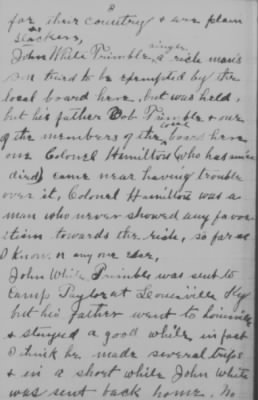 8
for their country & are plain
slackers,
John White Trimble, a rich man's
son tried to be exempted by the
local board here, but was held,
but his father Bob Trimble & one
of the members of the local board here
one Colonel Hamilton (who has since
died) came near having trouble
over it, Colonel Hamilton was a
man who never showed any favor
itism towards the rich, so far as
I know, or any one else,
John White Trimble was sent to
Camp Taylor at Louisville Ky
but his father went to Louisville
& stayed a good while, in fact
I think he made several trips
& in a short while John White
was sent back home, No